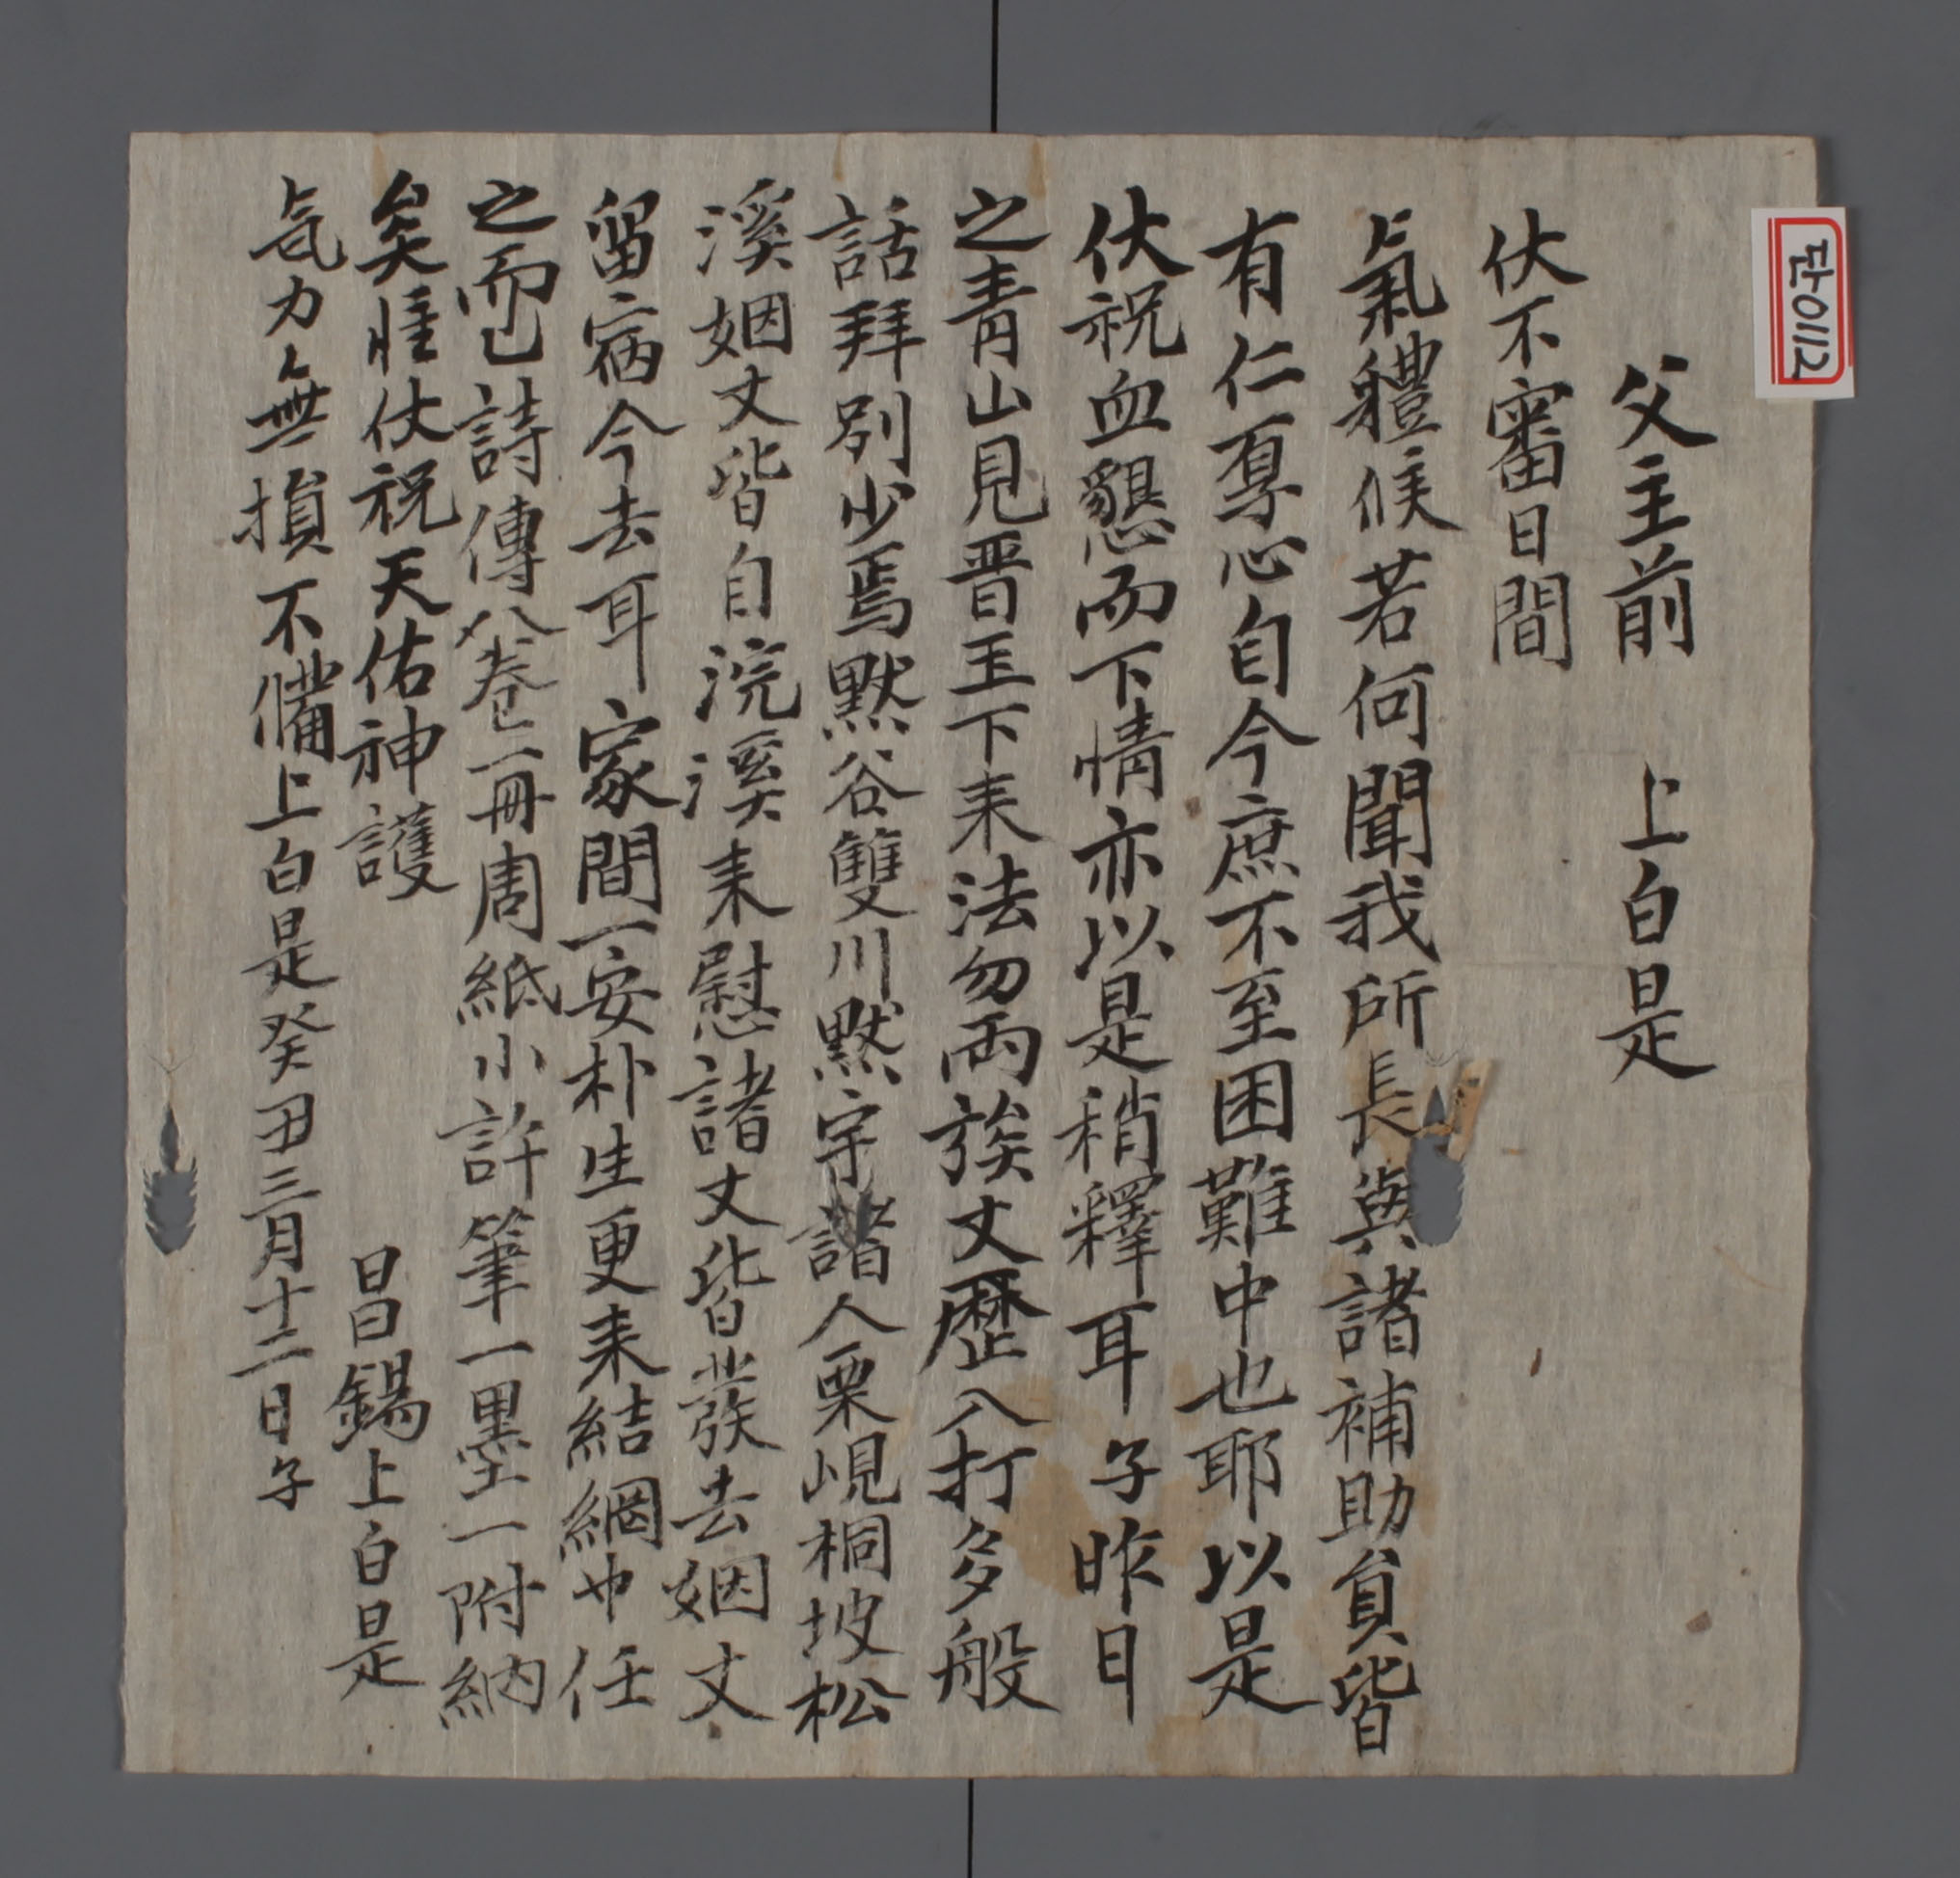 단0112
父主前 上白是
伏不審日間
氣體候若何聞我所長與諸補助員皆
有仁厚心自今庶不至困難中也耶以是
伏祝血懇而下情亦以是稍釋耳子昨日
之青山見晋玉下来法勿兩族丈歷入打多般
話拜別少焉默谷雙川默宇諸人栗峴桐坡松
溪姻丈皆自浣溪来慰諸丈皆發去姻丈
留宿今去耳家間一安朴生更来結網中任
之而已詩傳八卷一冊周紙小許筆一墨一附納
矣惟伏祝天佑神護
昌錫上白是
氣力無損不備上白是癸丑三月十二日子